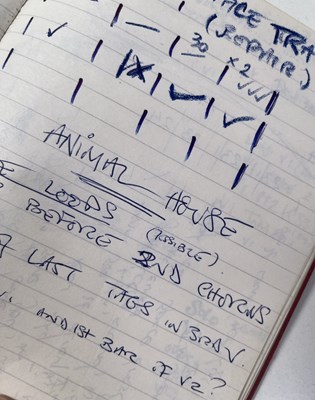 TRA
(REPAIR)
30
x2
ANIMAL HOUSE
LEEDS (POSSIBLE).
BEFORE 2ND CHORUS
LAST TAGS IN
AND 1ST BAR OF V2?